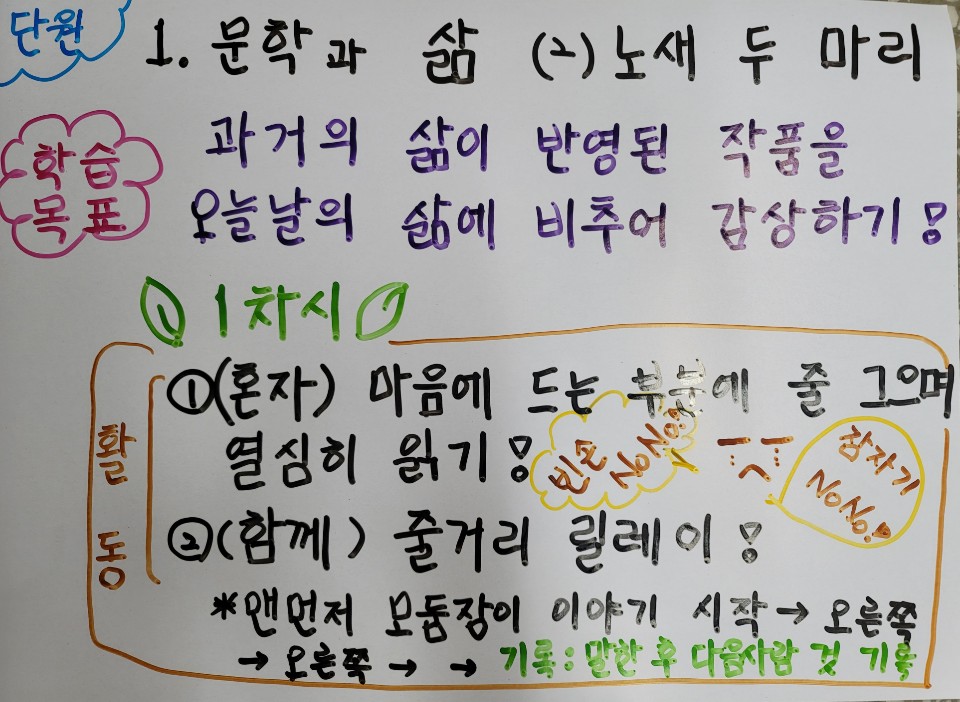 단원
1. 문학과 삶 (2) 노새 두 마리
학습
목표
과거의 삶이 반영된 작품을
오늘날의 삶에 비추어 감상하기!
1차시
활동
①(혼자) 마음에 드는 부분에 줄 그으며
열심히 읽기!
빈손
NoNo!
잠자기
NoNo!
②(함께) 줄거리 릴레이!
*맨먼저 모둠장이 이야기 시작→오른쪽
→오른쪽→ → 기록:말한 후 다음사람 것 기록